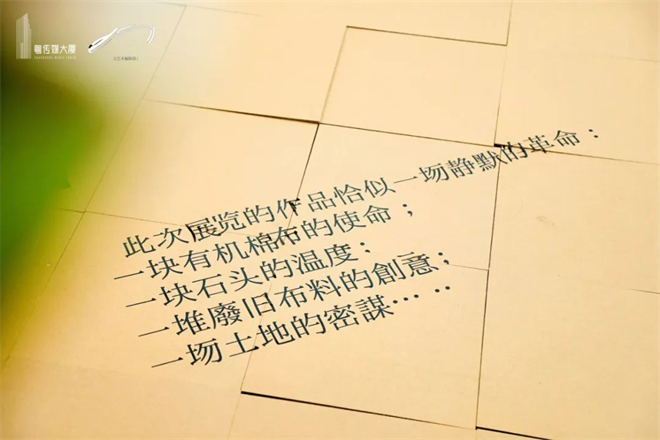 粤传媒大厦
此次展览的作品恰似一场静默的革命：
一块有机棉布的使命；
一块石头的温度：
一堆廢旧布料的創意；
一场土地的密謀……